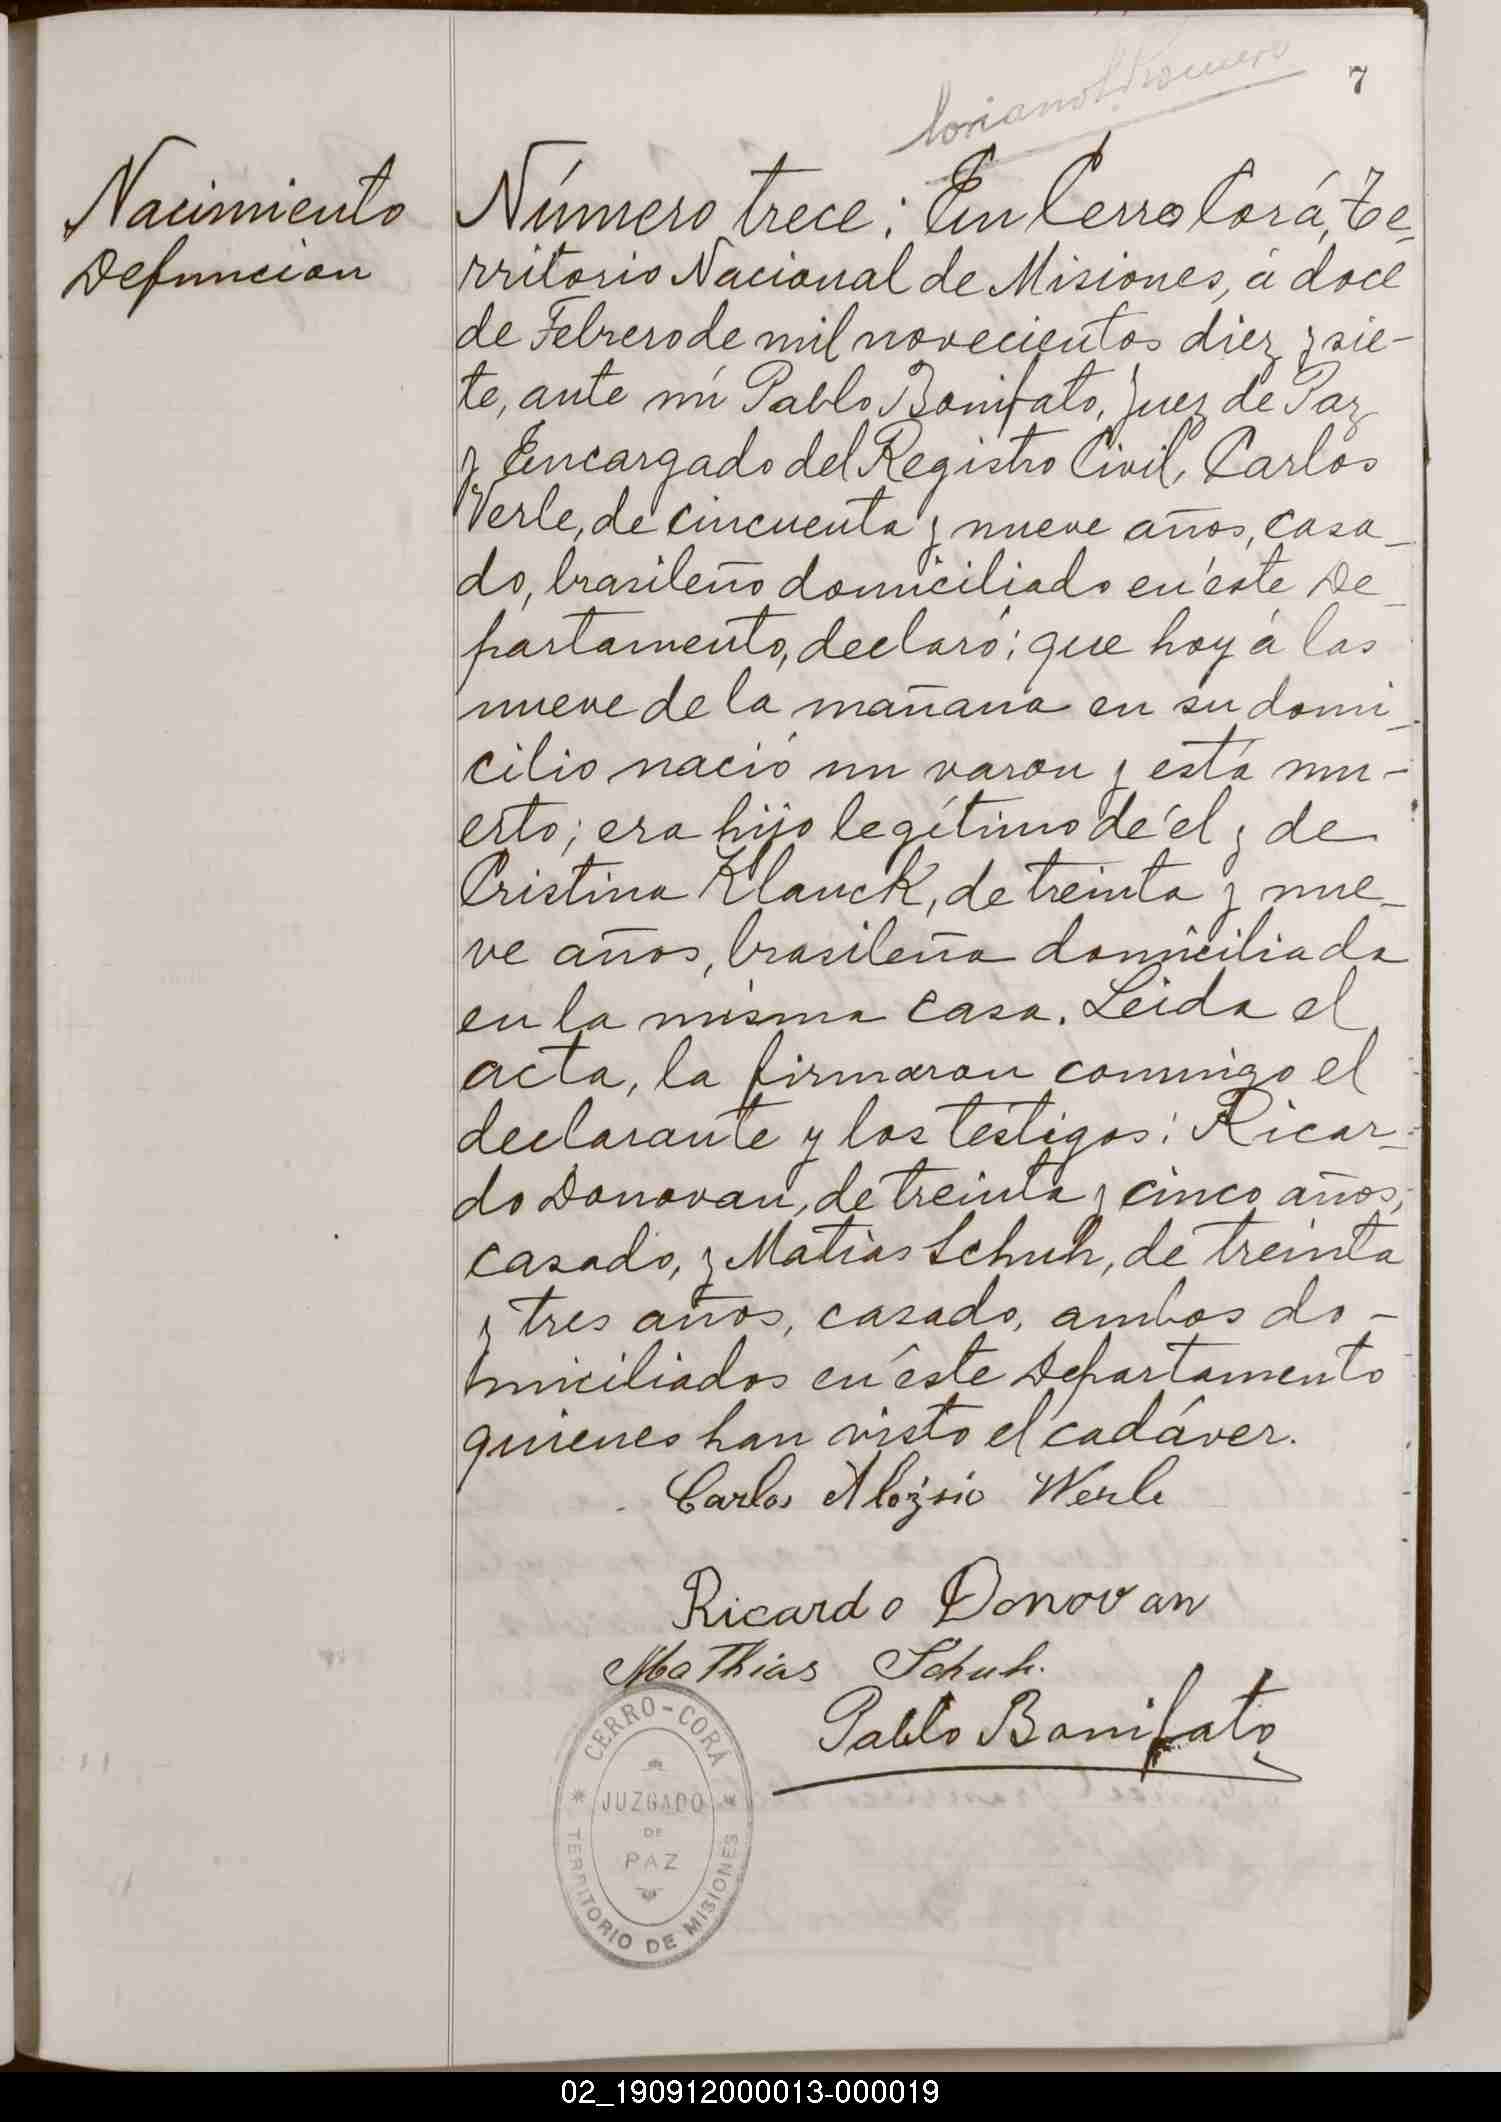 7
Nacimiento
Defuncion
Número trece: En Cerro Corá, Te-
rritorio Nacional de Misiones, á doce
de Febrero de mil novecientos diez y sie-
te, ante mí Pablo Bonifato, Juez de Paz
y Encargado del Registro Civil, Carlos
Verle, de cincuenta y nueve años, casa-
do, brasileño domiciliado en éste De-
partamento, declaró; que hoy á las
nueve de la mañana en su domi-
cilio nació un varon y está mu-
erto; era hijo legítimo de él y de
Cristina Klauck, de treinta y nue-
ve años, brasileña domiciliada
en la misma casa. Leida el
acta, la firmaron conmigo el
declarante y los testigos: Ricar-
do Donovan, de treinta y cinco años,
casado, y Matias Schuh, de treinta
y tres años, casado, ambos do-
miciliados en éste Departamento
quienes han visto el cadáver.
Carlos Aloysio Werle
Ricardo Donovan
Mathias Schuh.
Pablo Bonifato
CERRO-CORÁ
* JUZGADO *
DE
PAZ
TERRITORIO DE MISIONES
02_190912000013-000019